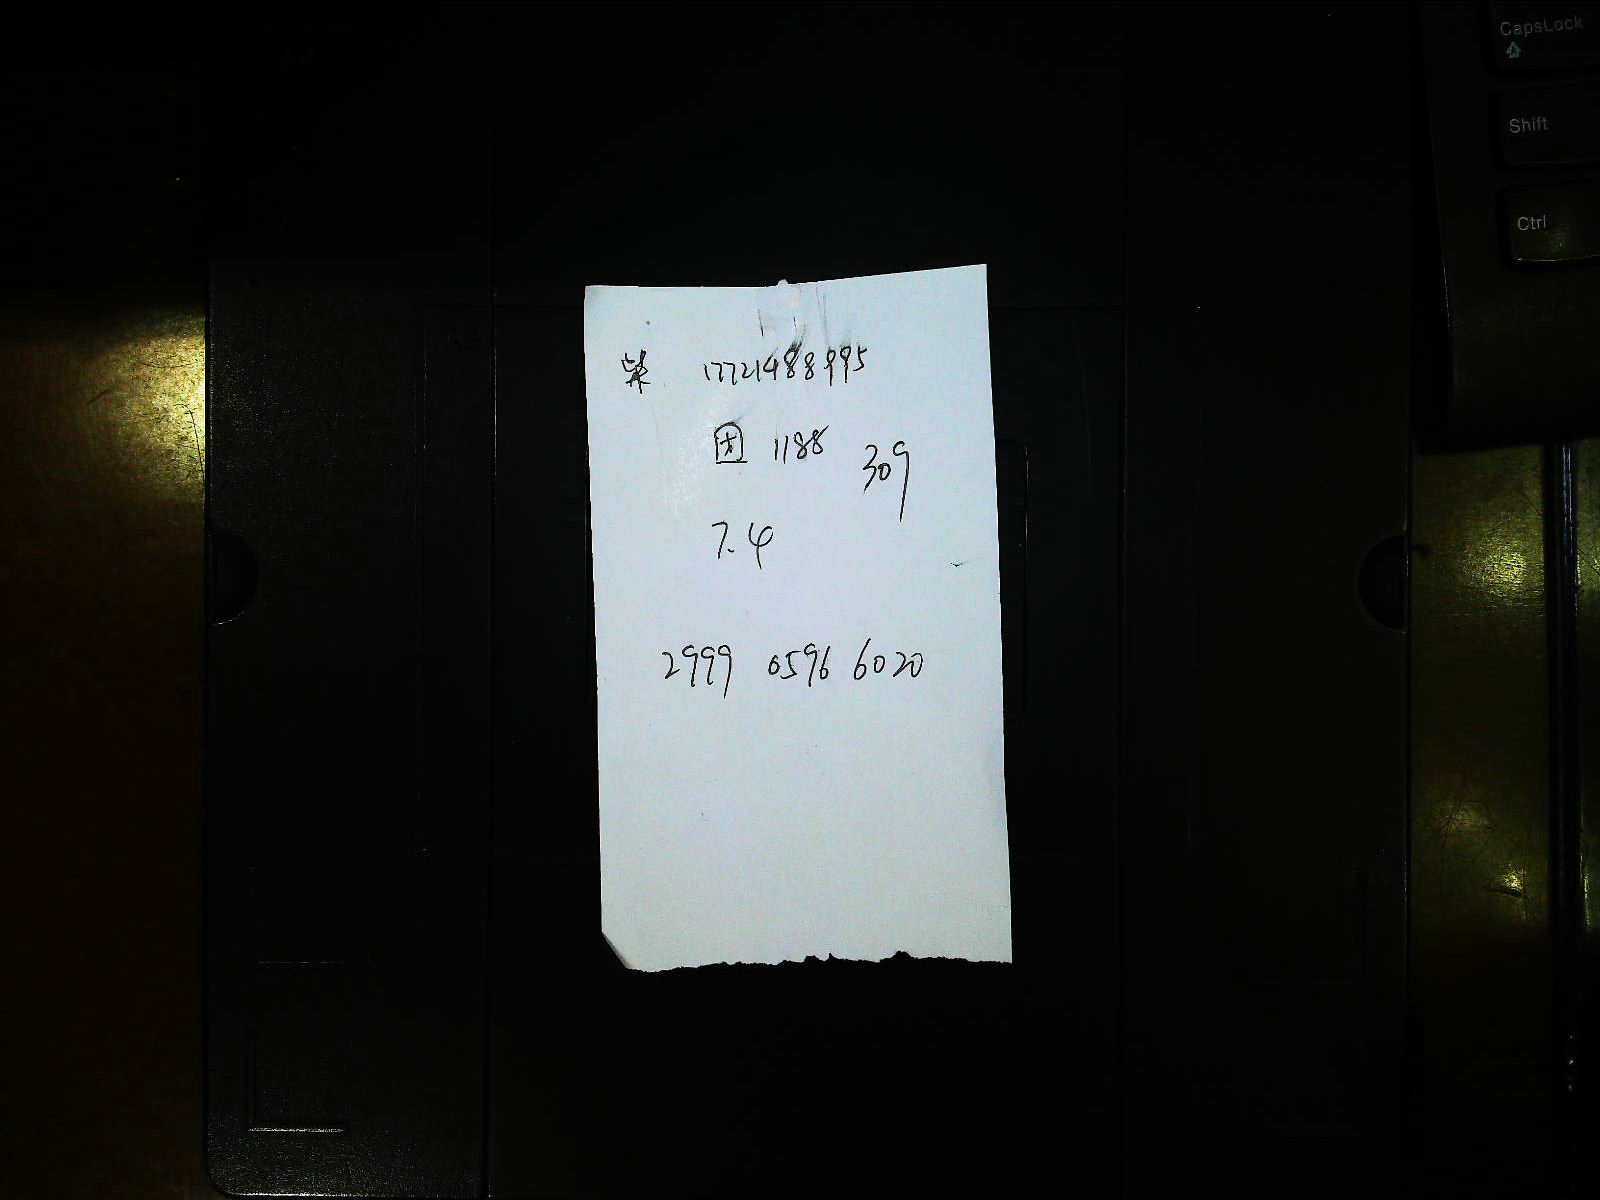 柴 17721488995
团 1188 309
7.4
2999 0596 6020
CapsLock
Shift
Ctrl